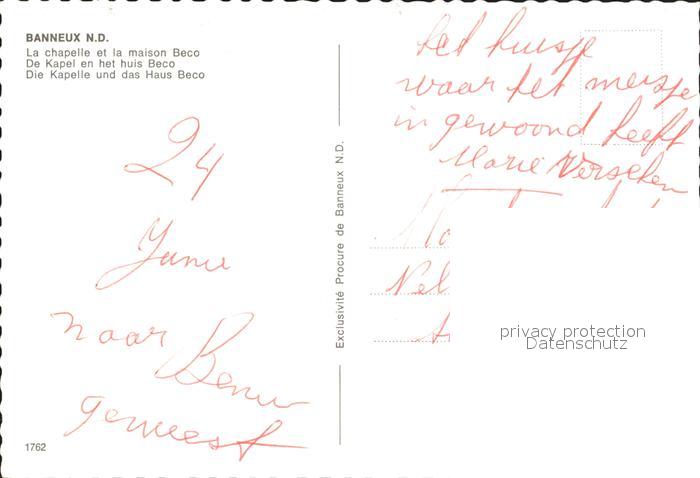 BANNEUX N.D.
La chapelle et la maison Beco
De Kapel en het huis Beco
Die Kapelle und das Haus Beco
24
naar
geweest
1762
Exclusivité Procure de Banneux N.D.
het huisje
waar het meisje
in gewoond heeft
Marie
Nel
privacy protection
Datenschutz